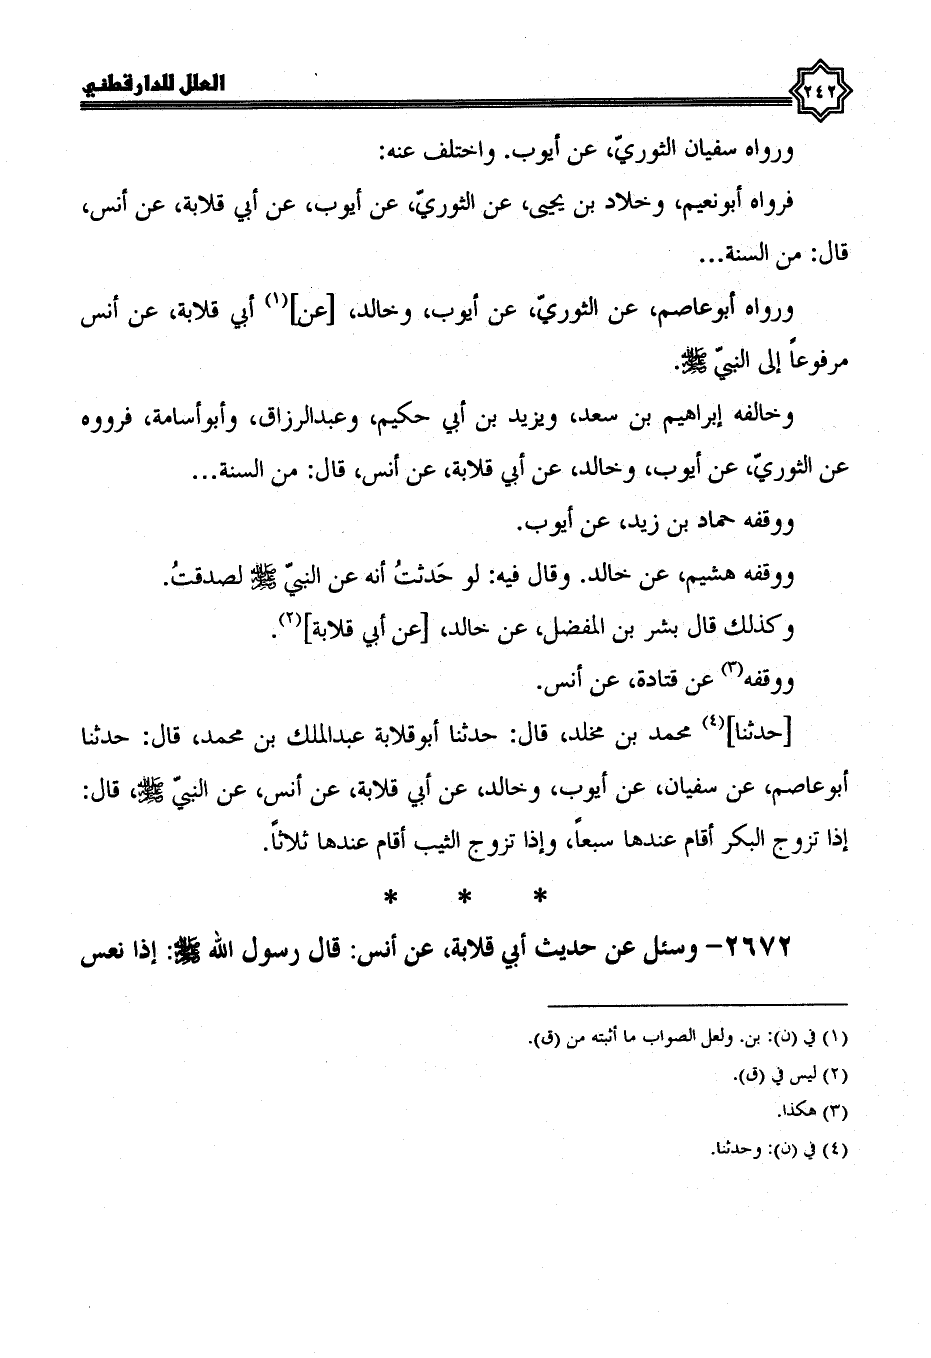 ٢٤٢ العلل للدارقطني
ورواه سفيان الثوريّ، عن أيوب. واختلف عنه:
فرواه أبونعيم، وخلاد بن يحيى، عن الثوريّ، عن أيوب، عن أبي قلابة، عن أنس،
قال: من السنة...
ورواه أبوعاصم، عن الثوريّ، عن أيوب، وخالد، [عن](١) أبي قلابة، عن أنس
مرفوعاً إلى النبيّ ﷺ.
وخالفه إبراهيم بن سعد، ويزيد بن أبي حكيم، وعبدالرزاق، وأبوأسامة، فرووه
عن الثوريّ، عن أيوب، وخالد، عن أبي قلابة، عن أنس، قال: من السنة...
ووقفه حماد بن زيد، عن أيوب.
ووقفه هشيم، عن خالد. وقال فيه: لو حَدثتُ أنه عن النبيّ ﷺ لصدقتُ.
وكذلك قال بشر بن المفضل، عن خالد، [عن أبي قلابة](٢).
ووقفه(٣) عن قتادة، عن أنس.
[حدثنا](٤) محمد بن مخلد، قال: حدثنا أبوقلابة عبدالملك بن محمد، قال: حدثنا
أبوعاصم، عن سفيان، عن أيوب، وخالد، عن أبي قلابة، عن أنس، عن النبيّ ﷺ، قال:
إذا تزوج البكر أقام عندها سبعاً، وإذا تزوج الثيب أقام عندها ثلاثاً.
* * *
٢٦٧٢- وسئل عن حديث أبي قلابة، عن أنس: قال رسول الله ﷺ: إذا نعس
(١) في (ن): بن. ولعل الصواب ما أثبته من (ق).
(٢) ليس في (ق).
(٣) هكذا.
(٤) في (ن): وحدثنا.